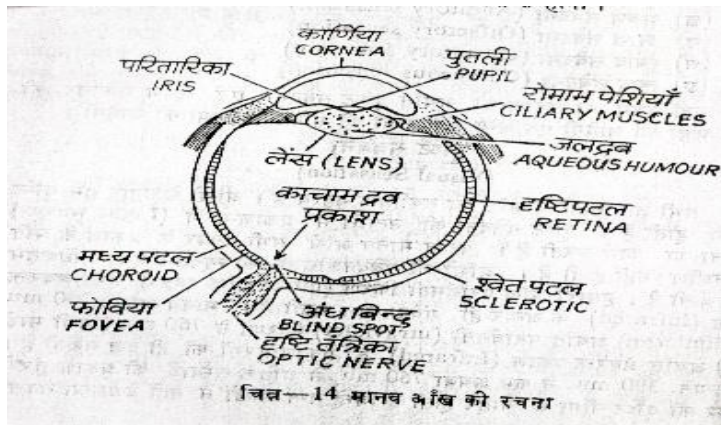 कार्णिया
CORNEA
परितारिका
IRIS
पुतली
PUPIL
रोमाम पेशियाँ
CILIARY MUSCLES
जलद्रव
AQUEOUS HUMOUR
लेंस (LENS)
काचाम द्रव
प्रकाश
दृष्टिपटल
RETINA
मध्य पटल
CHOROID
श्वेत पटल
SCLEROTIC
फोविया
FOVEA
अंध बिन्दु
BLIND SPOT
दृष्टि तंत्रिका
OPTIC NERVE
चित्र—14 मानव आँख की रचना